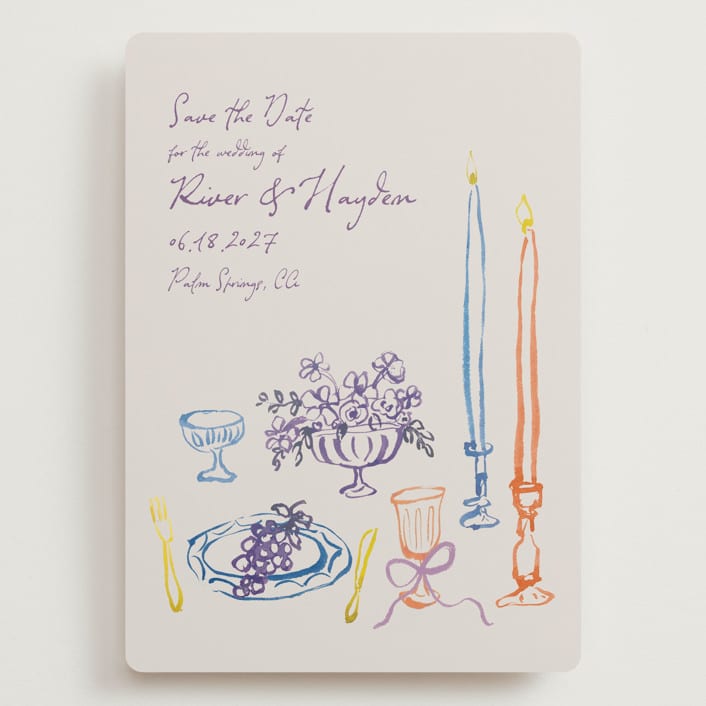 Save the Date
for the wedding of
River & Hayden
06.18.2027
Palm Springs, CA